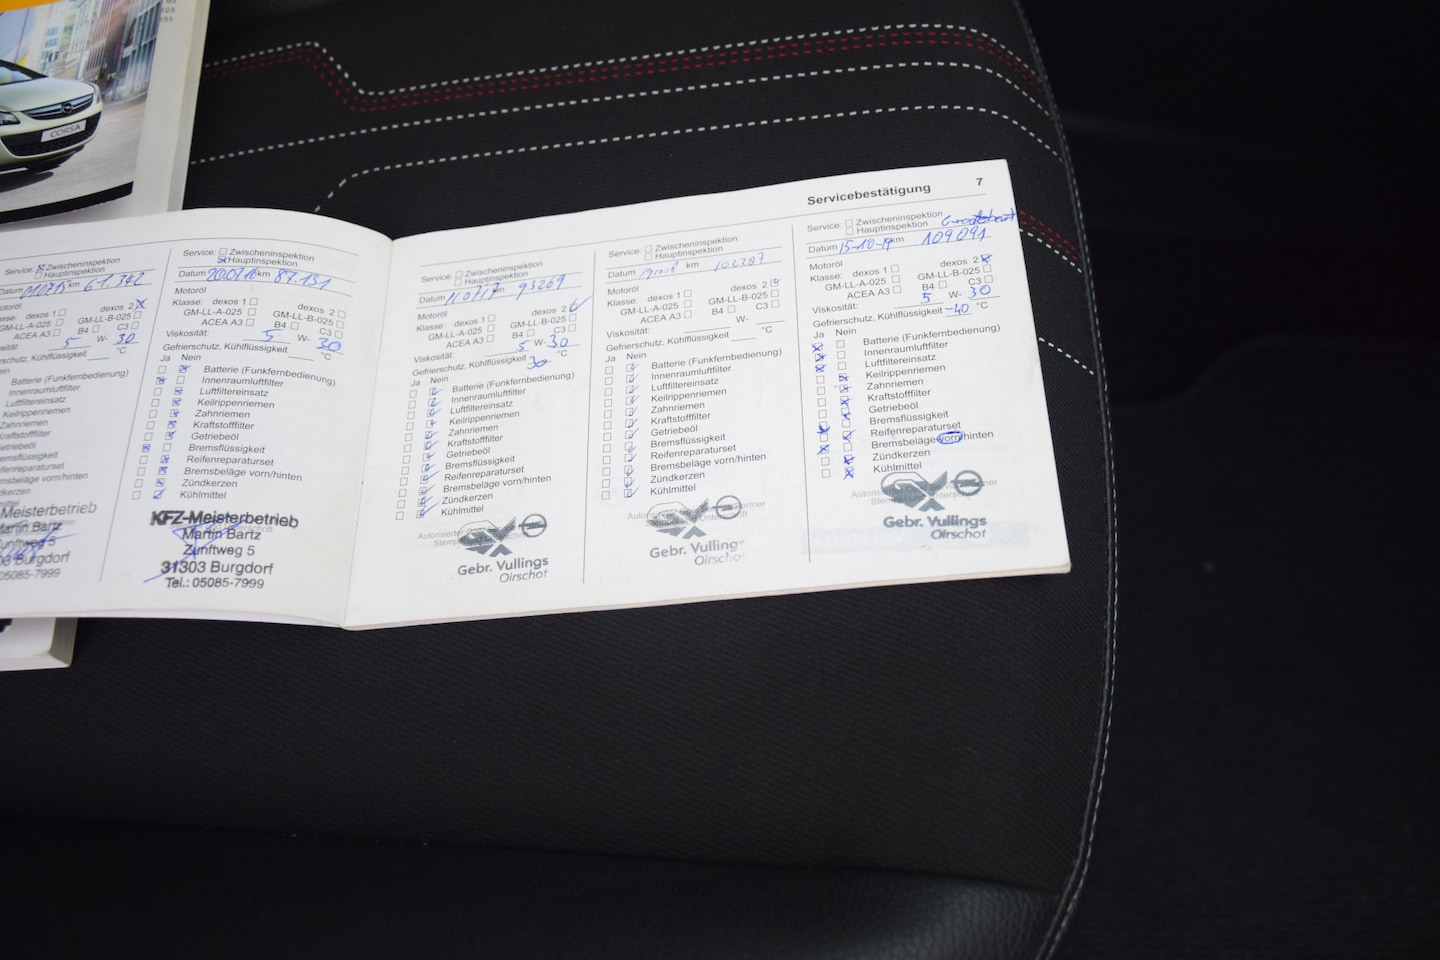 CORSA
Servicebestätigung 7
Service: Zwischeninspektion
Hauptinspektion
Datum 110715 km 61.342
Motoröl
Klasse: dexos 1 dexos 2
GM-LL-A-025 GM-LL-B-025
ACEA A3 B4 C3
5 W- 30
Gefrierschutz, Kühlflüssigkeit °C
Nein
Batterie (Funkfernbedienung)
Innenraumluftfilter
Luftfiltereinsatz
Keilrippenriemen
Zahnriemen
Kraftstofffilter
Getriebeöl
Bremsflüssigkeit
Reifenreparaturset
Bremsbeläge vorn/hinten
Zündkerzen
Kühlmittel
Meisterbetrieb
Martin Bartz
Zunftweg 5
31303 Burgdorf
05085-7999
Service: Zwischeninspektion
Hauptinspektion
Datum 200716 km 87.131
Motoröl
Klasse: dexos 1 dexos 2
GM-LL-A-025 GM-LL-B-025
ACEA A3 B4 C3
Viskosität: 5 W- 30
Gefrierschutz, Kühlflüssigkeit °C
Ja Nein
Batterie (Funkfernbedienung)
Innenraumluftfilter
Luftfiltereinsatz
Keilrippenriemen
Zahnriemen
Kraftstofffilter
Getriebeöl
Bremsflüssigkeit
Reifenreparaturset
Bremsbeläge vorn/hinten
Zündkerzen
Kühlmittel
KFZ-Meisterbetrieb
Martin Bartz
Zunftweg 5
31303 Burgdorf
Tel.: 05085-7999
Service: Zwischeninspektion
Hauptinspektion
Datum 110717 km 93269
Motoröl
Klasse: dexos 1 dexos 2
GM-LL-A-025 GM-LL-B-025
ACEA A3 B4 C3
Viskosität: 5 W- 30
Gefrierschutz, Kühlflüssigkeit 30 °C
Ja Nein
Batterie (Funkfernbedienung)
Innenraumluftfilter
Luftfiltereinsatz
Keilrippenriemen
Zahnriemen
Kraftstofffilter
Getriebeöl
Bremsflüssigkeit
Reifenreparaturset
Bremsbeläge vorn/hinten
Zündkerzen
Kühlmittel
Gebr. Vullings
Oirschot
Service: Zwischeninspektion
Hauptinspektion
Datum km 102287
Motoröl
Klasse: dexos 1 dexos 2
GM-LL-A-025 GM-LL-B-025
ACEA A3 B4 C3
Viskosität: W-
Gefrierschutz, Kühlflüssigkeit °C
Ja Nein
Batterie (Funkfernbedienung)
Innenraumluftfilter
Luftfiltereinsatz
Keilrippenriemen
Zahnriemen
Kraftstofffilter
Getriebeöl
Bremsflüssigkeit
Reifenreparaturset
Bremsbeläge vorn/hinten
Zündkerzen
Kühlmittel
Gebr. Vullings
Oirschot
Service: Zwischeninspektion
Hauptinspektion
Datum 15-10-19 km 109091
Motoröl
Klasse: dexos 1 dexos 2
GM-LL-A-025 GM-LL-B-025
ACEA A3 B4 C3
Viskosität: 5 W- 30
Gefrierschutz, Kühlflüssigkeit -40 °C
Ja Nein
Batterie (Funkfernbedienung)
Innenraumluftfilter
Luftfiltereinsatz
Keilrippenriemen
Zahnriemen
Kraftstofffilter
Getriebeöl
Bremsflüssigkeit
Reifenreparaturset
Bremsbeläge vorn/hinten
Zündkerzen
Kühlmittel
Gebr. Vullings
Oirschot